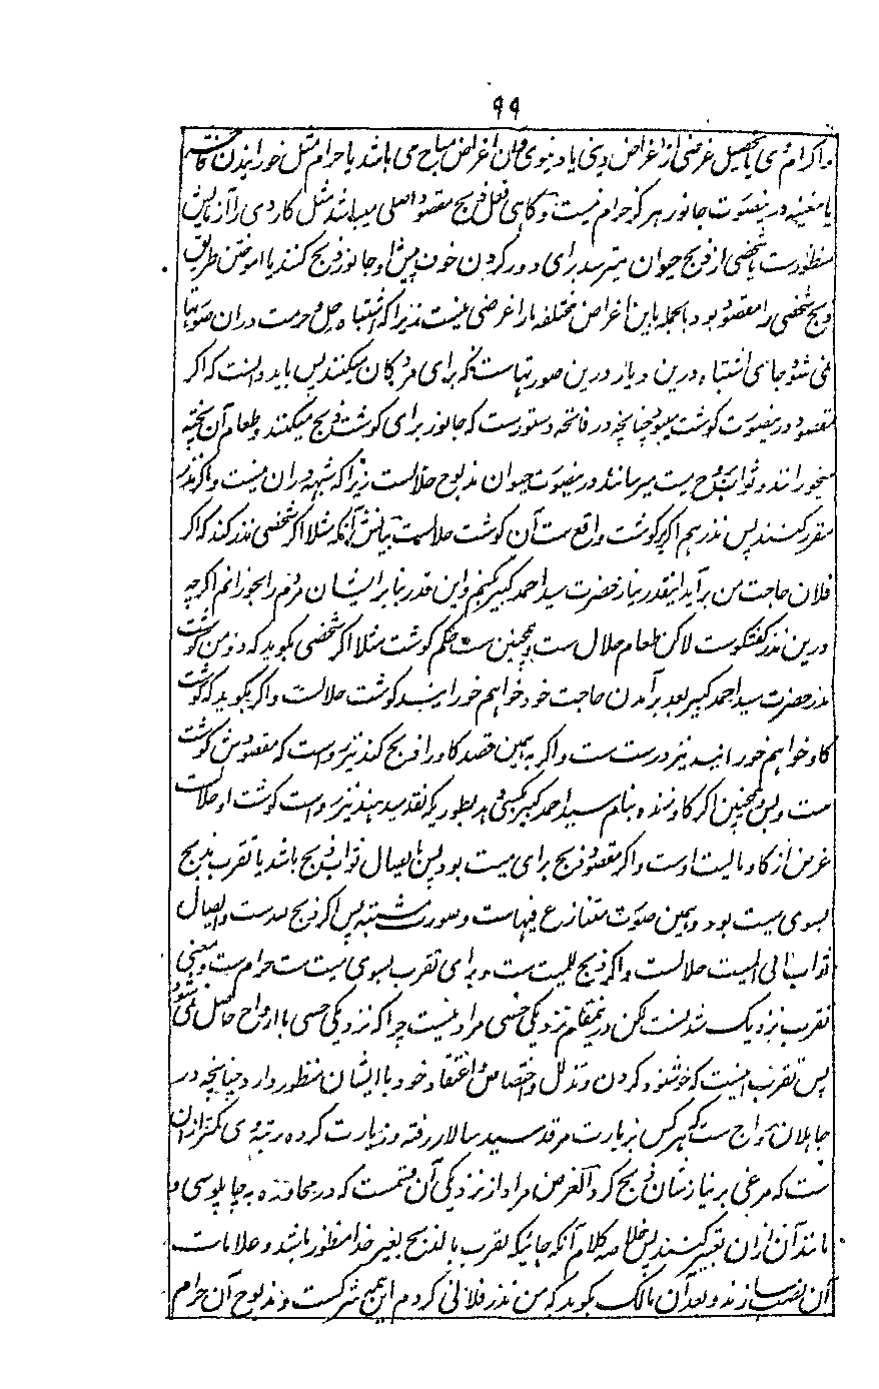 ۹۹
واکرام وی یا تحصیل غرضی از اغراض دینی یا دنیوی وآن اغراض مباح می باشد یا حرام مثل خورانیدن
یا مغنیه درینصورت جانور هرگز حرام نیست وگاهی فعل ذبح مقصود اصلی میباشد مثل کاردی را آزمایش
منظورست یا شخصی از ذبح حیوان میترسد برای دور کردن خون پیش او جانور ذبح کنند یا آموختن طریق
ذبح شخصی را مقصود بود بالجمله باین اغراض مختلفه مارا غرضی نیست زیرا که اشتباه حل وحرمت دران صورتها
نمی شود جای اشتباه درین دیار درین صورتهاست که برای مردگان میکنند پس باید دانست که اگر
مقصود درینصورت گوشت میبود چنانچه در فاتحه دستورست که جانور برای گوشت ذبح میکنند وطعام آن پخته
میخورانند وثواب بروح میت میرسانند درینصورت حیوان مذبوح حلالست زیرا که شبهه دران نیست واگر نذر
مقرر کنند پس نذر هم اگر بر گوشت واقع ست آن گوشت حلالست بیانش آنکه مثلا اگر شخصی نذر کند که اگر
فلان حاجت من برآید اینقدر نیاز حضرت سید احمد کبیر کنم واین قدر بنابر ایشان مردم را بخورانم اگرچه
درین نذر گفتگوست لاکن طعام حلال ست وهمچنین ست حکم گوشت مثلا اگر شخصی بگوید که دو من گوشت
نذر حضرت سید احمد کبیر بعد برآمدن حاجت خود خواهم خورانید گوشت حلالست واگر بگوید که گوشت
گاو خواهم خورانید نیز درست ست واگر به همین قصد گاو را ذبح کند نیز رواست که مقصودش گوشت
ست وبس وهمچنین اگر گاو زنده بنام سید احمد کبیر بکسی بدهد بطوریکه نقد میدهند نیز رواست گوشت او حلالست
غرض از گاو مالیت اوست واگر مقصود ذبح برای میت بود پس یا ایصال ثواب ذبح باشد یا تقرب بذبح
بسوی میت بود وهمین صورت متنازع فیهاست وصورت مشتبه پس اگر ذبح للدست وایصال
ثواب الی المیت حلالست واگر ذبح للمیت ست وبرای تقرب بسوی میت ست حرام ست ومعنی
تقرب نزدیک شدنست لکن درینمقام نزدیکی حسی مراد نیست چراکه نزدیکی حسی با ارواح حاصل نمی شود
پس تقرب اینست که خوشنود کردن وتذلل واختصاص واعتقاد خود با ایشان منظور دارد چنانچه در
جاهلان رواج ست که هر کس بزیارت مرقد سید سالار رفته وزیارت کرده رتبه وی کمتر ازان
ست که مرغی بر نیاز شان ذبح کرد الغرض مراد از نزدیکی آن قسمت که در محاوره به چاپلوسی و
مانند آن ازان تعبیر کنند پس خلاصه کلام آنکه جائیکه تقرب بالذبح بغیر خدا منظور باشد وعلامات
آن نصب سازند وبعد آن مالک بگوید که من نذر فلانی کردم این همه شرکست ومذبوح آن حرام